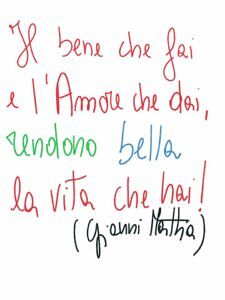 Il bene che fai
e l'Amore che dai,
rendono bella
la vita che hai!
(Gianni Mattia)